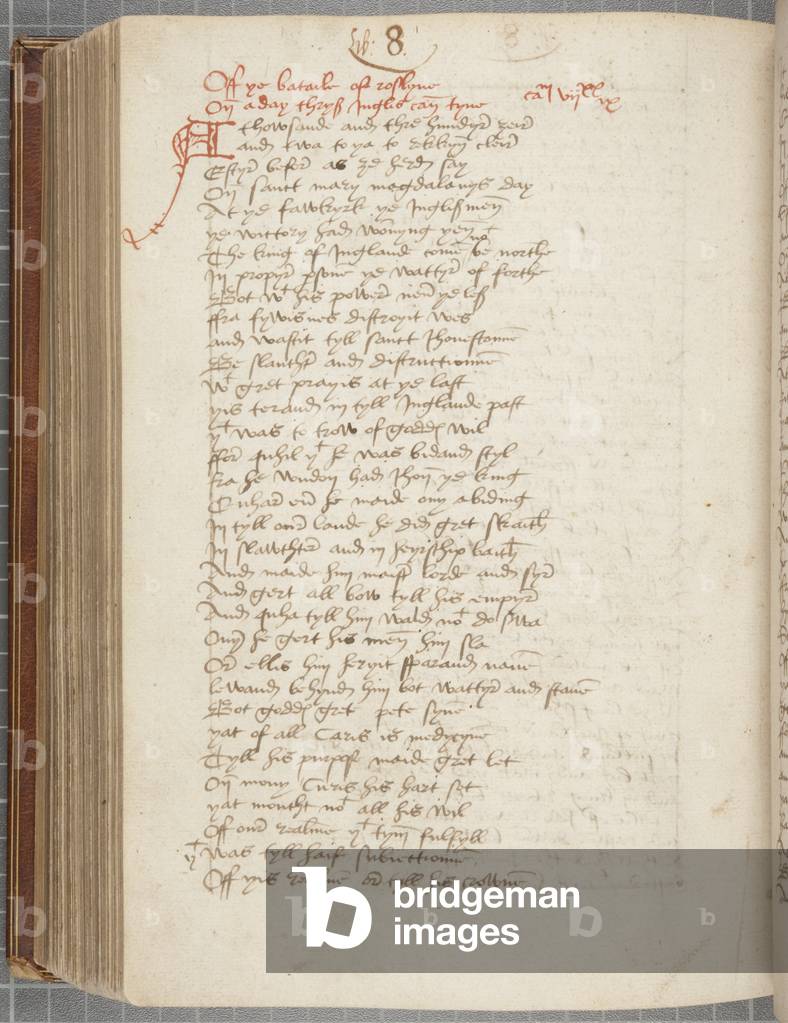 lib: 8
Off ye bataile of roslyne
On a day thryß Inglis can tyne
caᵐ viiˣˣ ix
A thowsande and thre hundyr ȝeir
and twa to ya to rekkyn cleir
Estyr befer as ȝe herd say
On sanct mary magdalanys day
At ye fawkyrk ye Inglismen
ye wictory had wonnyng yen
The king of Inglande come be northe
In propyr psone ye wattyr of forthe
Bot wᵗ his power neuer ye les
ffra distroyit wes
and wastit tyll sanct Jhonistonne
Be slauthir and distructionne
wᵗ gret prayis at ye last
yis terand in tyll Inglande past
yᵗ was to trow of godd wil
ffor quhil yᵗ he was bidand styl
fra he wndon had Jhon ye king
Quhar euer he maide ony abiding
In tyll our lande he did gret skaith
In slawthter and in heyrschip baith
And maide him maist lorde and syr
And gert all bow tyll his empyr
And quha tyll him wald noᵗ do swa
Ony he gert his men him sla
Or ellis him heryit sparand nane
lewand behynd him bot wattyr and stane
Bot godd gret pete syne
yat of all Caris is medycyne
Tyll his purpos maide gret let
On mony Curis his hart set
yat moucht noᵗ all his wil
Off our realme yᵗ tym fulfyll
yᵗ was tyll haif subiectionne
Off yis realme or tyll his crowne
b bridgeman images